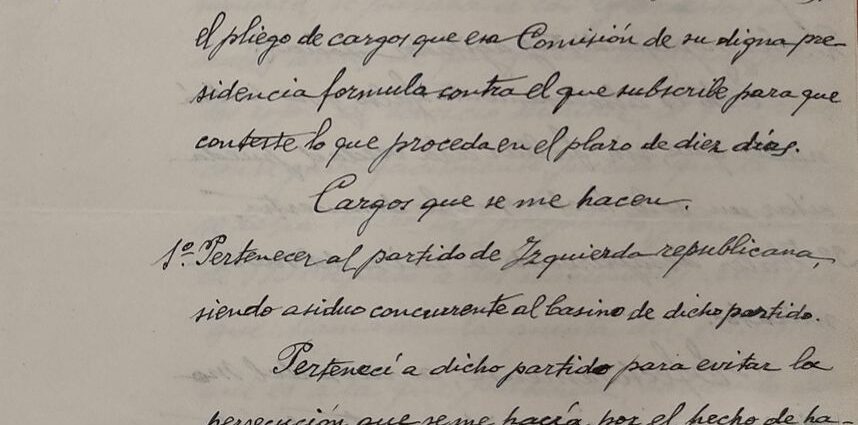 el pliego de cargos que esa Comisión de su digna pre-
sidencia formula contra el que subscribe para que
conteste lo que proceda en el plazo de diez días.
Cargos que se me hacen.
1º. Pertenecer al partido de Izquierda republicana,
siendo asiduo concurrente al Casino de dicho partido.
Pertenecí a dicho partido para evitar la
persecución que se me hacía, por el hecho de ha-